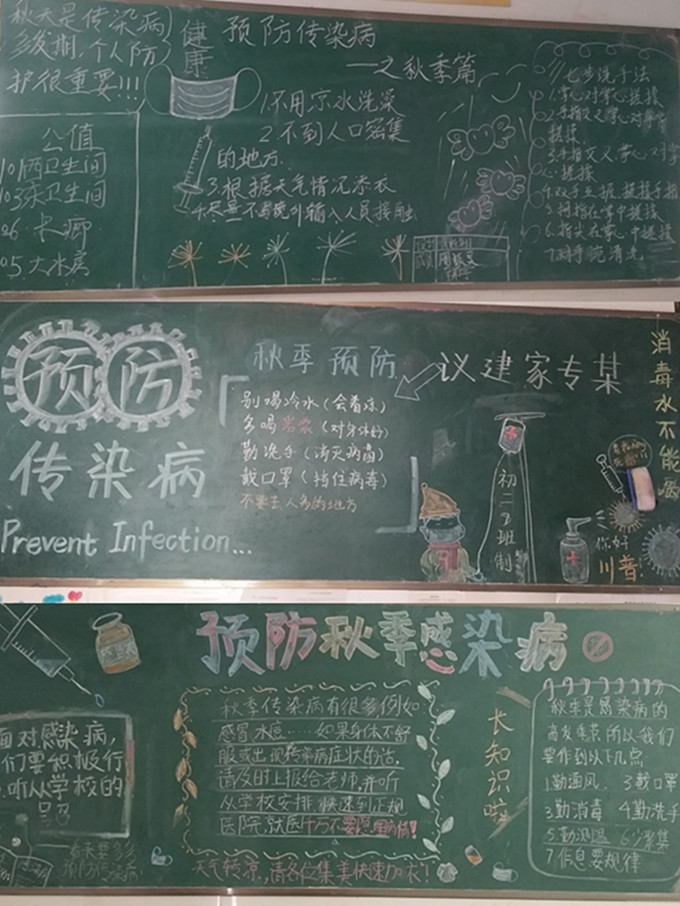 秋天是传染病
多发期,个人防
护很重要!!!
健康
预防传染病
—之秋季篇
1.不用凉水洗澡
2.不到人口密集
的地方.
3.根据天气情况添衣
公值
卫生间
卫生间
七步洗手法
1.掌心对掌心搓揉
5.拇指在掌中搓揉
6.指尖在掌心中搓揉
预防
传染病
Prevent Infection...
秋季预防
别喝冷水(会着凉)
多喝岩浆(对身体好)
勤洗手(消灭病毒)
戴口罩(挡住病毒)
不要去人多的地方
议建家专某
初二
班制
消毒水不能
你好
川普
预防秋季感染病
面对感染病,
们要积极行
听从学校的
号召
预防传染病
秋季传染病有很多例如
感冒 水痘……如果身体不舒
服或出现传染病症状的话,
请及时上报给老师,并听
从学校安排 快速到正规
医院就医千万不要
天气转凉,请各位集美快速加衣!
长知识啦
秋季是感染病的
高发季节,所以我们
要作到以下几点
1勤通风 3戴口罩
3勤消毒 4勤洗手
5勤测温 6少聚集
7作息要规律